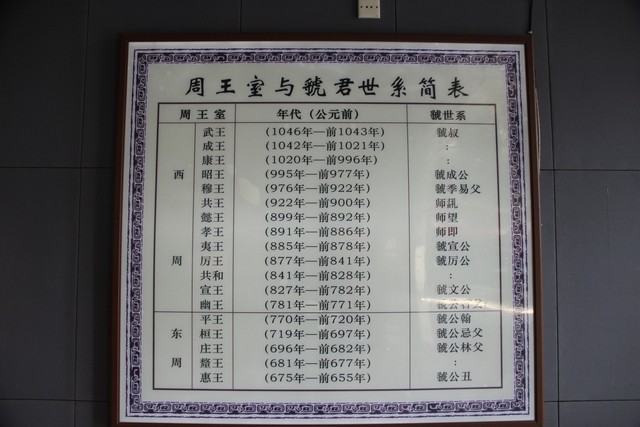 周王室与虢君世系简表
周王室 年代（公元前） 虢世系
武王 (1046年—前1043年) 虢叔
成王 (1042年—前1021年) :
康王 (1020年—前996年) :
西 昭王 (995年—前977年) 虢成公
穆王 (976年—前922年) 虢季易父
共王 (922年—前900年) 师訊
懿王 (899年—前892年) 师望
孝王 (891年—前886年) 师即
夷王 (885年—前878年) 虢宣公
周 厉王 (877年—前841年) 虢厉公
共和 (841年—前828年) :
宣王 (827年—前782年) 虢文公
幽王 (781年—前771年) 虢公父
平王 (770年—前720年) 虢公翰
东 桓王 (719年—前697年) 虢公忌父
庄王 (696年—前682年) 虢公林父
周 釐王 (681年—前677年) :
惠王 (675年—前655年) 虢公丑